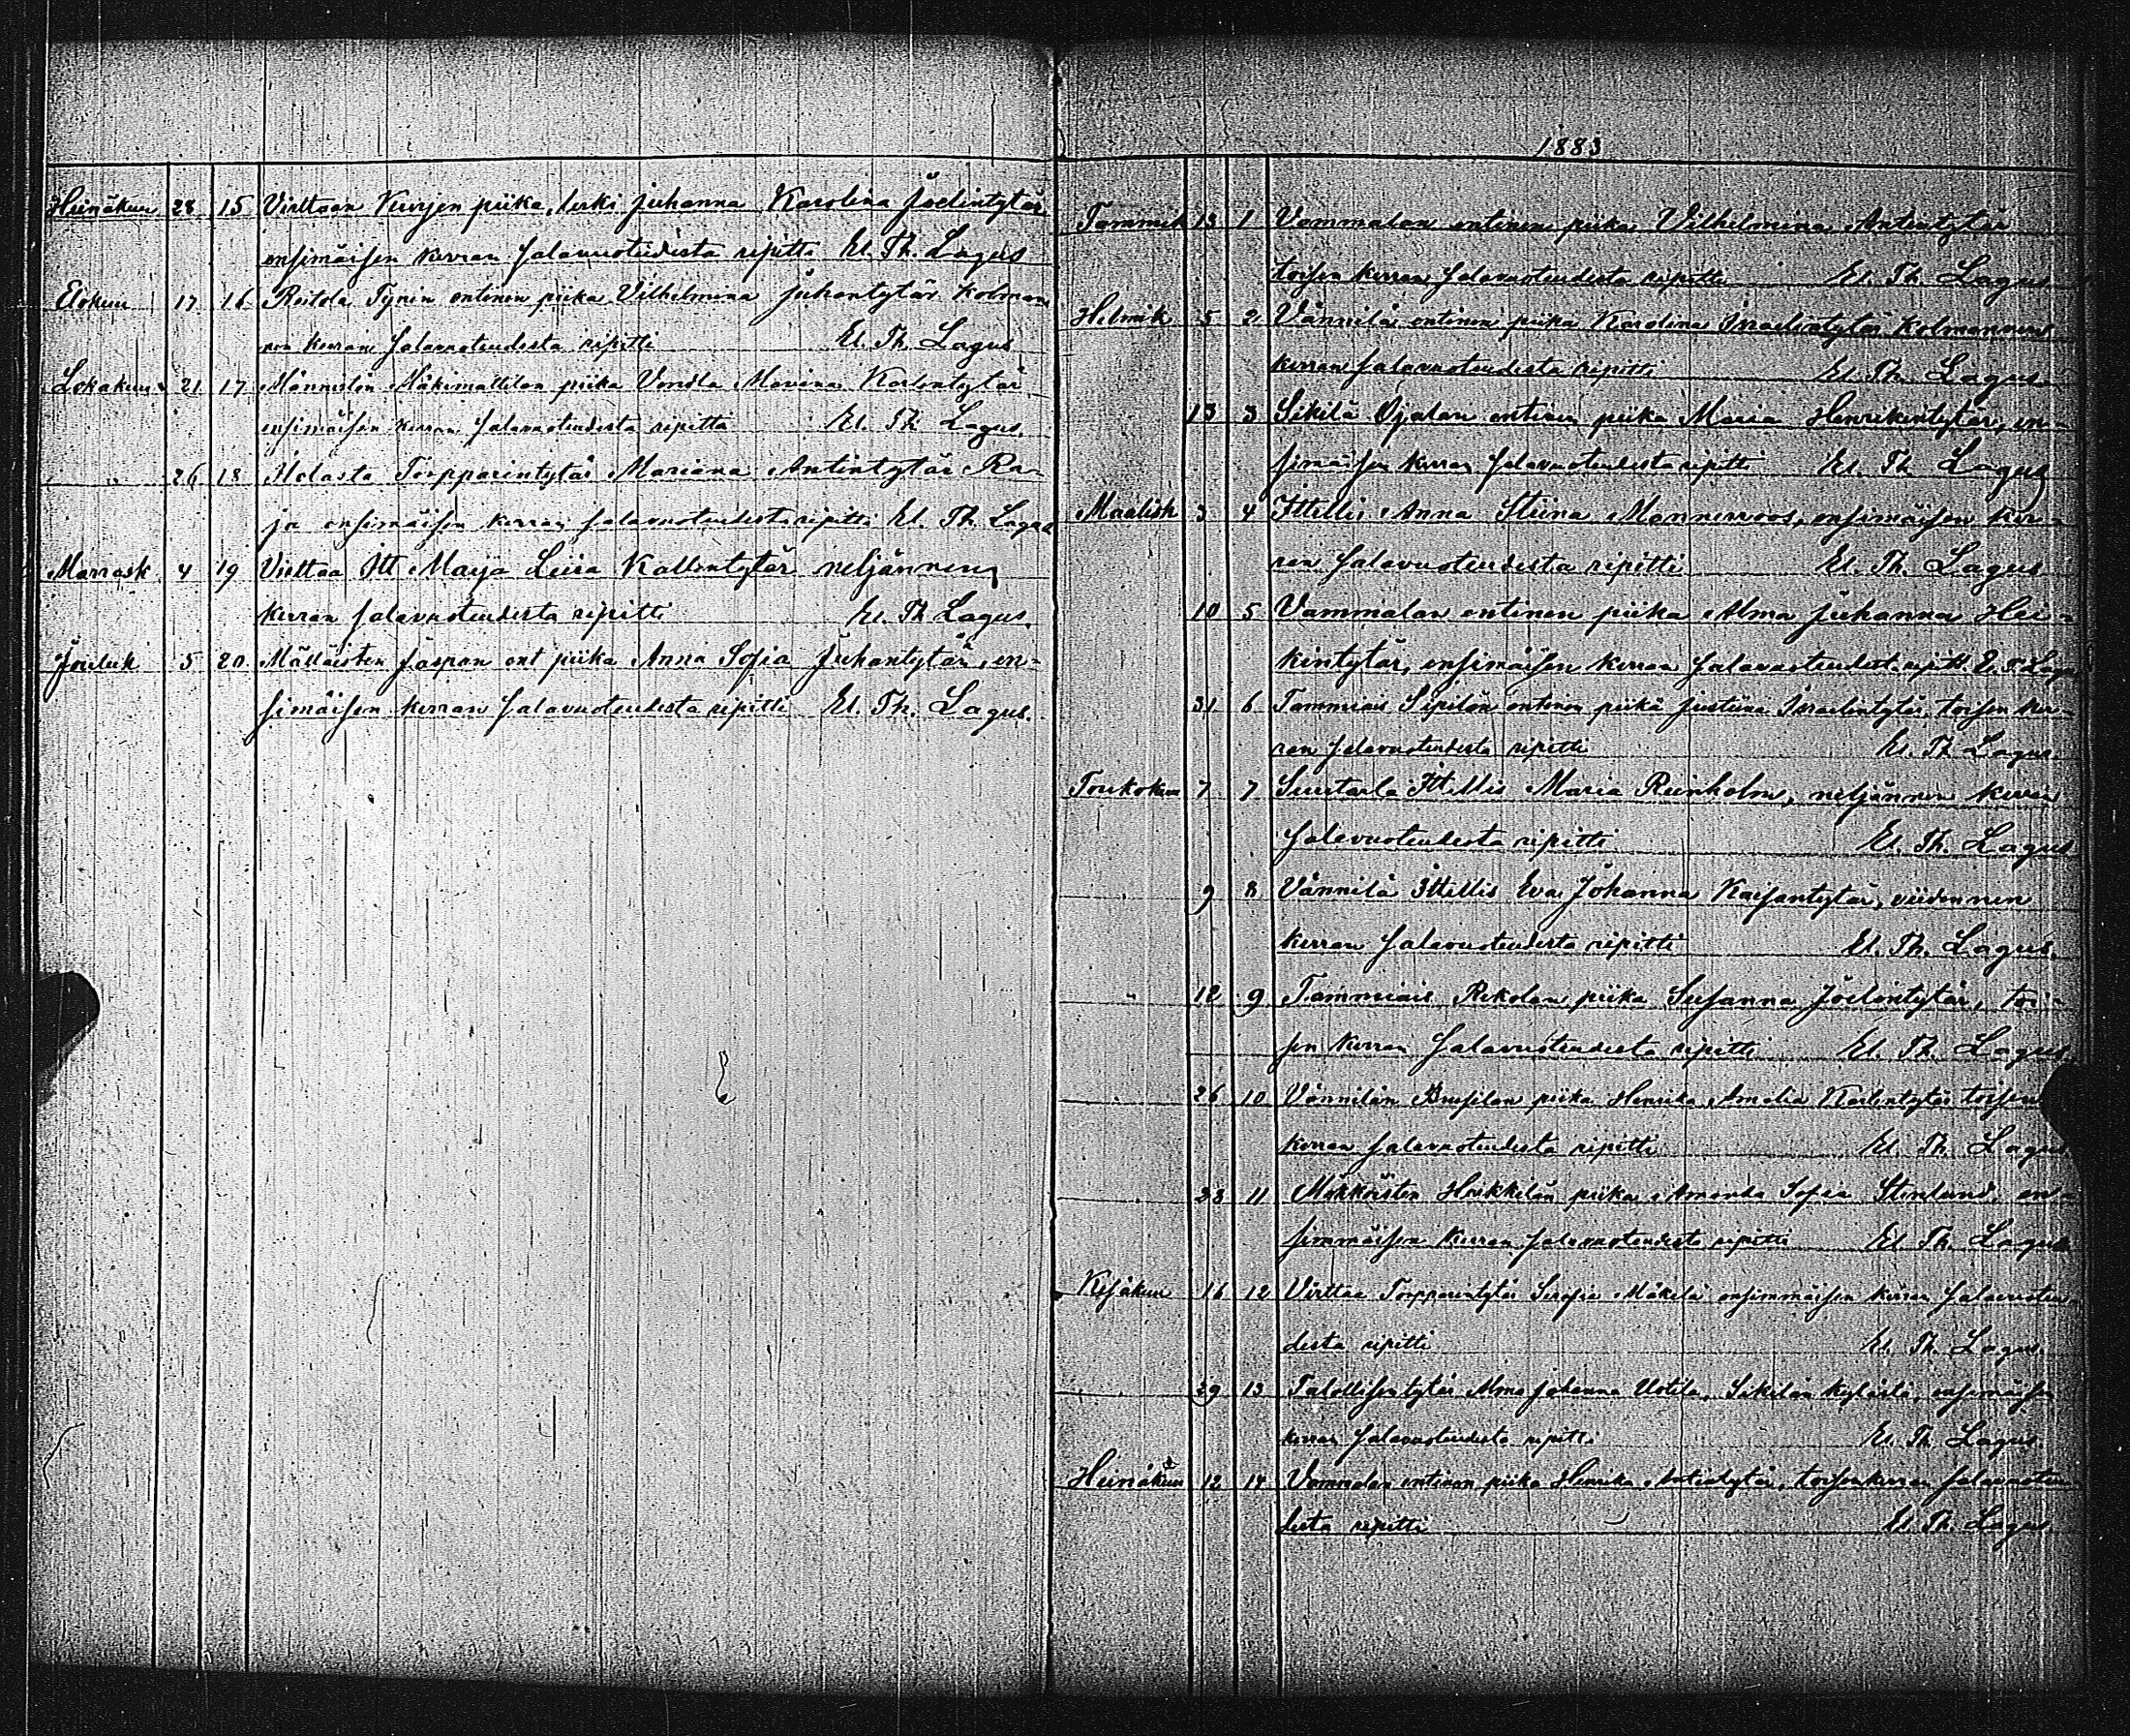 Heinäkuu 28 15 Virttaan Kurjen piika, leski Juhanna Karolina Joelintytär
ensimäisen kerran salavuoteudesta ripitti El. Th. Lagus
Elokuu 17 16 Roitola Tynin entinen piika Vilhelmina Juhantytär kolman
nen kerran salavuoteudesta ripitti El. Th. Lagus
Lokakuu 21 17 Männistön Mäkimattilan piika Vendla Marina Karlentytär
ensimäisen kerran salavuoteudesta ripitti El. Th. Lagus.
" 26 18 Torpparintytär Mariana Antintytär Ra-
ja ensimäisen kerran salavuoteudesta ripitti El. Th. Lagus
Marrask 4 19 Virttaa Itt Maija Leisa Kallentytär neljännen
kerran salavuoteudesta ripitti El. Th Lagus.
Jouluk 5 20. Mälläisten Jaspon ent piika Anna Sofia Juhantytär, en-
simäisen kerran salavuoteudesta ripitti El. Th. Lagus.
1883
Tammik 13 1 Vammalan entinen piika Vilhelmina Antintytär
toisen kerran salavuoteudesta ripitti El. Th. Lagus
Helmik 5 2 Vännilä entinen piika Karolina Israelintytär kolmannen
kerran salavuoteudesta ripitti El. Th. Lagus
13 3 Sikilä Ojalan entinen piika Maria Henrikintytär, en-
simäisen kerran salavuoteudesta ripitti El. Th Lagus
Maalisk 3 4 Ittellis Anna Stiina Mannerroos, ensimäisen ker-
ran salavuoteudesta ripitti El. Th. Lagus
10 5 Vammalan entinen piika Alma Juhanna Hei-
kintytär, ensimäisen kerran salavuoteudest. ripitt. E. T. Lagus
31 6 Tammiais Sipilän entinen piika Justiina Israelintytär, toisen ker-
ran salavuoteudesta ripitti El. Th Lagus.
Toukokuu 7 7 Suutarla Ittellis Maria Reinholm, neljännen kerran
salavuoteudesta ripitti El. Th. Lagus
" 9 8 Vännilä Ittellis Eva Johanna Kaisantytär, viidennen
kerran salavuoteudesta ripitti El. Th. Lagus.
" 12 9 Tammiais Rekolan piika Susanna Joelintytär, toi-
sen kerran salavuoteudesta ripitti El. Th. Lagus.
" 26 10 Vännilän piika Henrika Amalia Karlentytär toisen
kerran salavuoteudesta ripitti El. Th. Lagus
" 28 11 Mökköisten Heikkilän piika Amanda Sofia Stenlund, en-
simmäisen kerran salavuoteudesta ripitti El. Th. Lagus
Kesäkuu 16 12 Virttaa Torpparintytär Serafia Mäkelä ensimmäisen kerran salavuoteu-
desta ripitti El. Th. Lagus.
" 29 13 Talollisentytär Alma Johanna Uotila, Sikilän kylästä, ensimäisen
kerran salavuoteudesta ripitti El. Th Lagus.
Heinäkuu 12 14 Vammalan entinen piika Henrika Antintytär, toisen kerran salavuoteu
desta ripitti El. Th. Lagus.